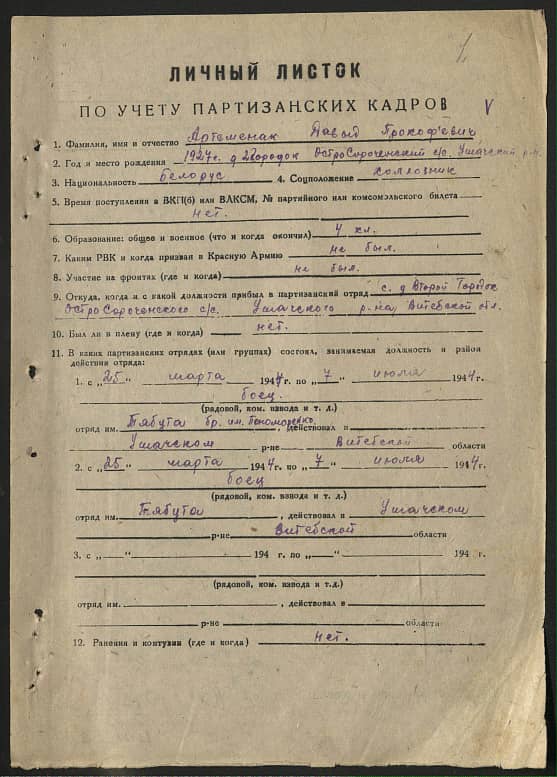 1
ЛИЧНЫЙ ЛИСТОК
ПО УЧЕТУ ПАРТИЗАНСКИХ КАДРОВ V
1. Фамилия, имя и отчество Артеменак Давыд Прокофьевич
2. Год и место рождения 1927г. д Двородок ОстроСороченский с/с. Ушачский р-н
3. Национальность белорус 4. Соцположение колхозник
5. Время поступления в ВКП(б) или ВЛКСМ, № партийного или комсомольского билета
нет.
6. Образование: общее и военное (что и когда окончил) 4 кл.
7. Каким РВК и когда призван в Красную Армию не был.
8. Участие на фронтах (где и когда) не был.
9. Откуда, когда и с какой должности прибыл в партизанский отряд с. д Второй Городок
ОстроСороченского с/с. Ушачского р-на, Витебской обл.
10. Был ли в плену (где и когда) нет.
11. В каких партизанских отрядах (или группах) состоял, занимаемая должность и район
действия отряда:
1. с „25" марта 1944 г. по „7" июля 1944 г.
боец.
(рядовой, ком. взвода и т. д.)
отряд им. Тябута бр. им. Пономоренко, действовал в
Ушачском р-не Витебской области
2. с „25" марта 1944 г. по „7" июля 1944 г.
боец
(рядовой, ком. взвода и т. д.)
отряд им. Тябута, действовал в Ушачском
р-не Витебской области
3. с „ " 194 г. по „ " 194 г.
(рядовой, ком. взвода и т.д.)
отряд им. , действовал в
р-не области
12. Ранения и контузии (где и когда) нет.